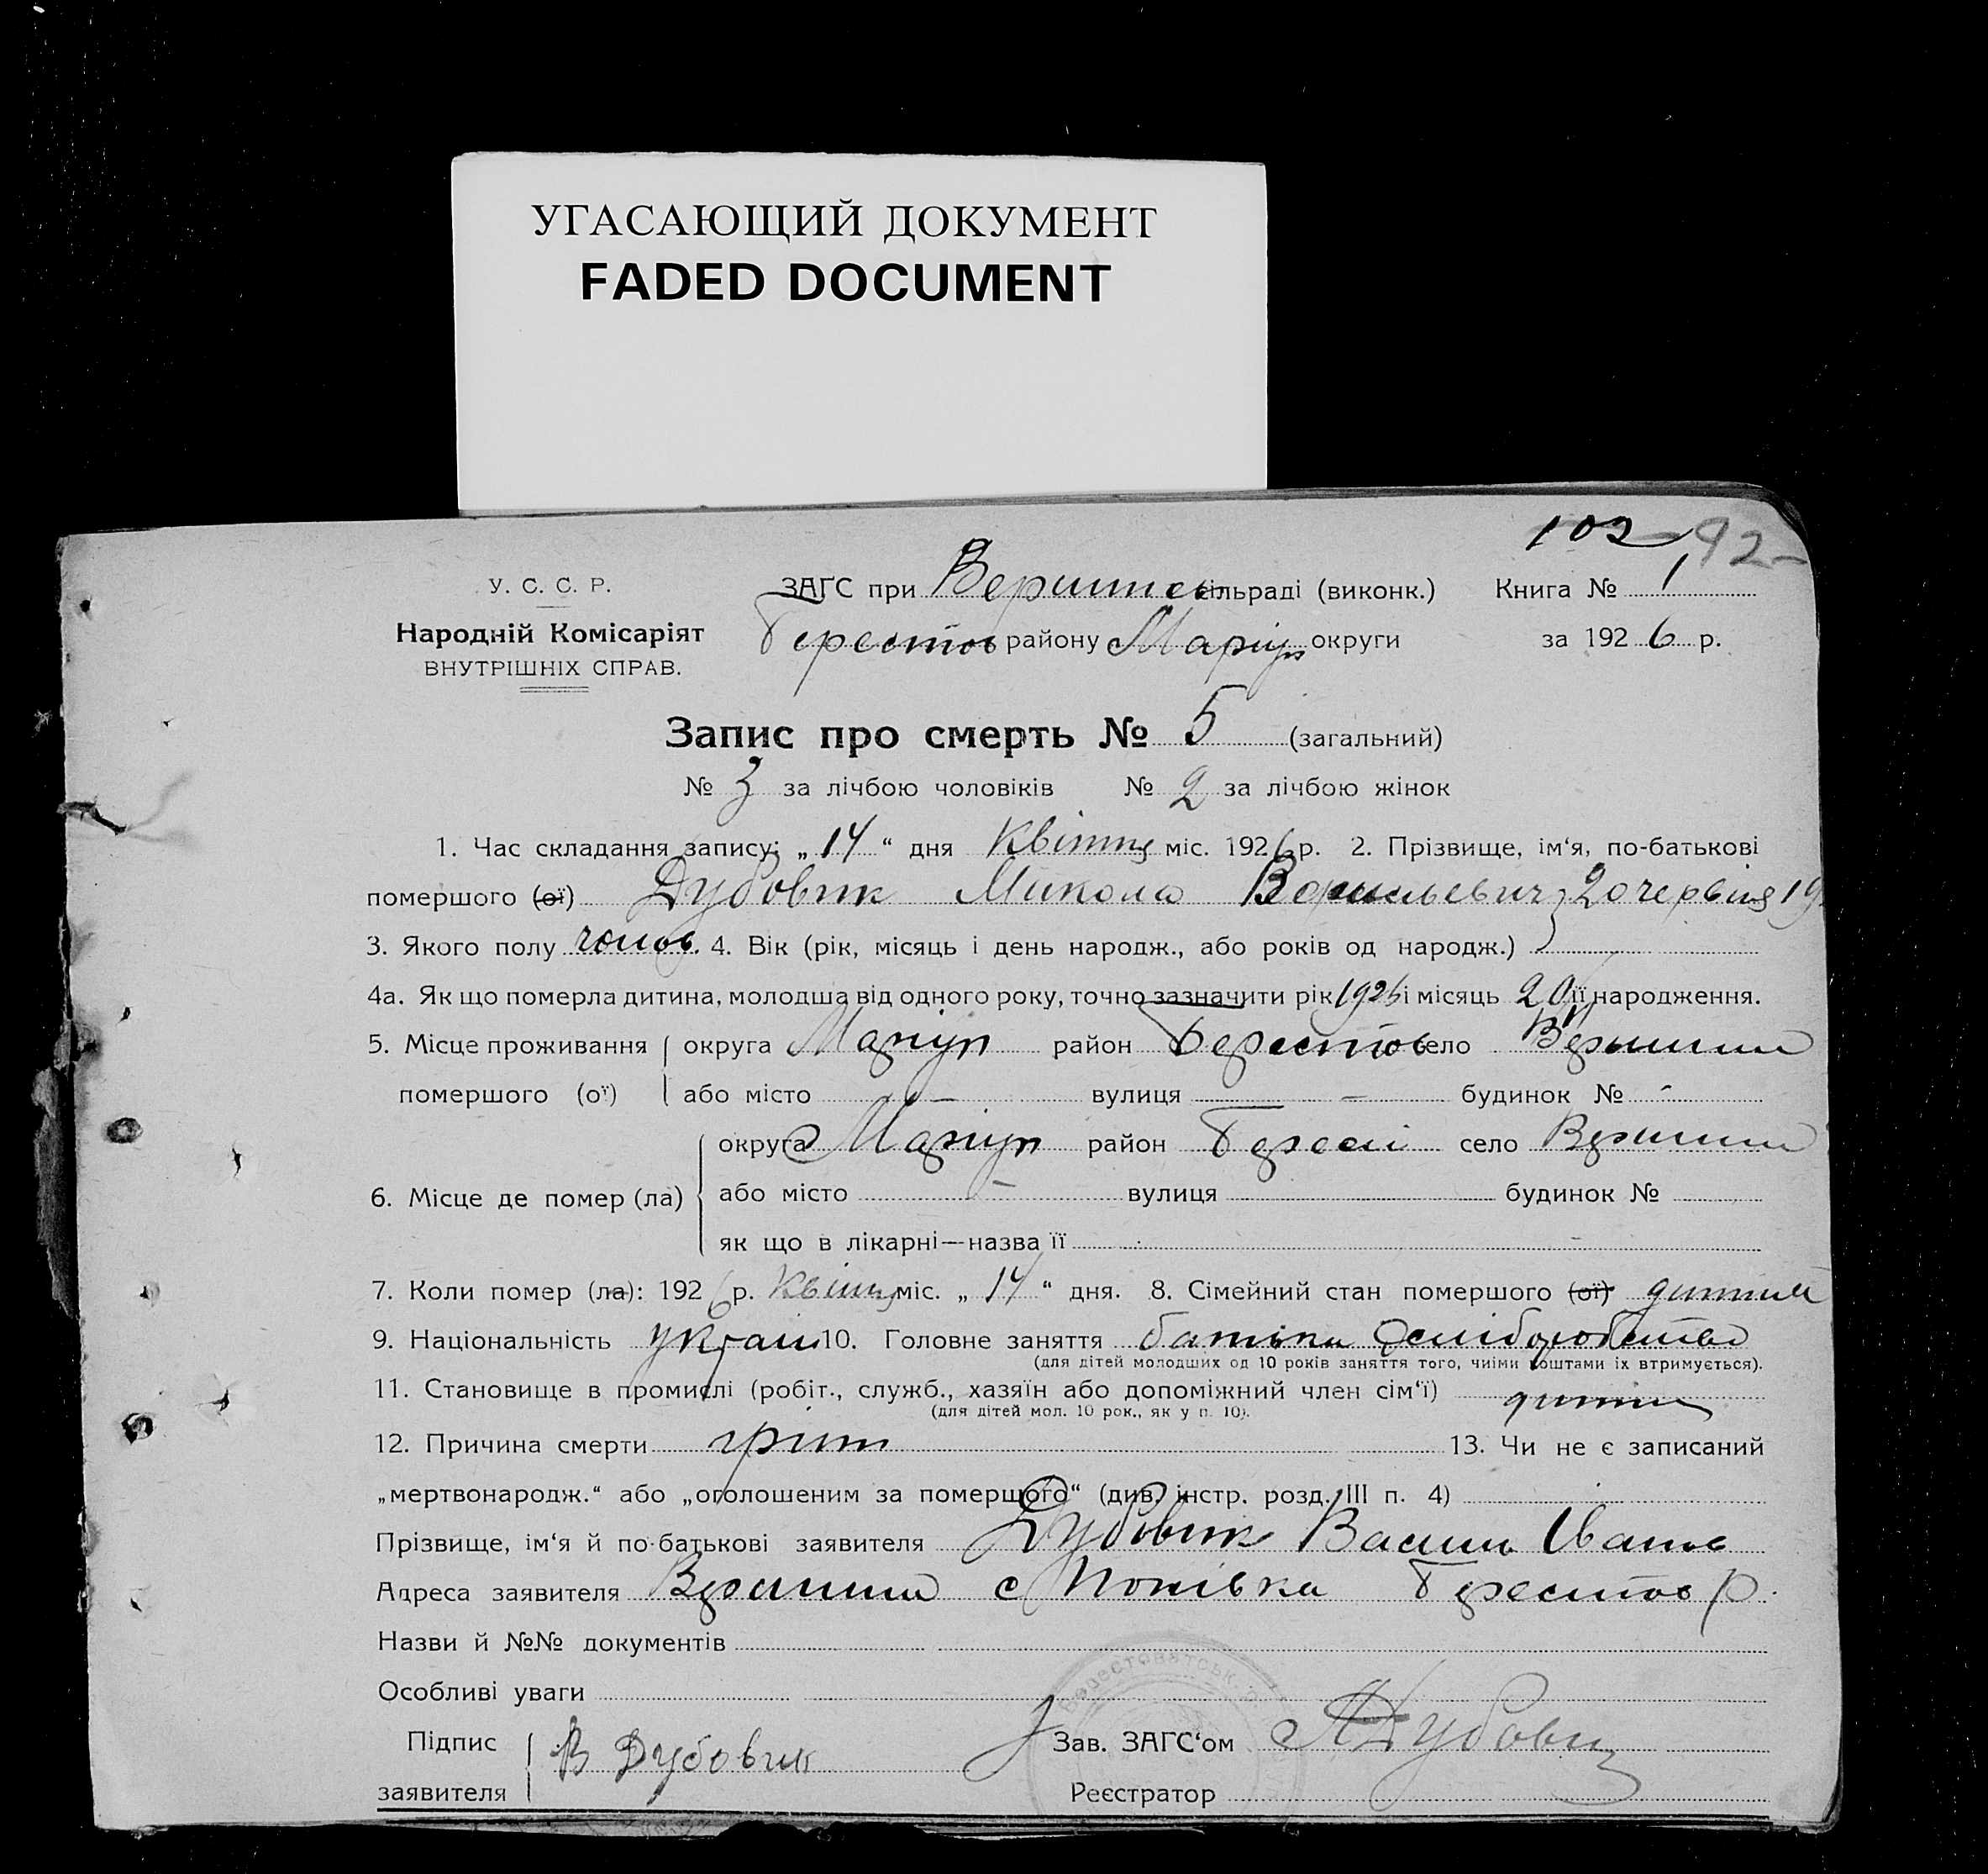 УГАСАЮЩИЙ ДОКУМЕНТ
FADED DOCUMENT
102 92
У. С. С. Р.
Народній Комісаріят
ВНУТРІШНІХ СПРАВ.
ЗАГС при сільраді (виконк.) Книга № 1
Берестов району Маріуп округи за 1926 р.
Запис про смерть № 5 (загальний)
№ 3 за лічбою чоловіків № 2 за лічбою жінок
1. Час складання запису: „ 14 “ дня Квітня міс. 1926 р. 2. Прізвище, ім‘я, по-батькові
помершого (ої) Дубовик Микола Васильевич 20 червця 19
3. Якого полу чолов. 4. Вік (рік, місяць і день народж., або років од народж.)
4а. Як що померла дитина, молодша від одного року, точно зазначити рік і місяць її народження.
5. Місце проживання округа Маріуп район Берестов село Вершини
помершого (ої) або місто — вулиця — будинок № -
6. Місце де помер (ла) округа Маріуп район село Вершини
або місто — вулиця будинок №
як що в лікарні—назва її
7. Коли помер (ла): 1926 р. Квітня міс. „ 14 “ дня. 8. Сімейний стан помершого (ої)
9. Національність україн 10. Головне заняття батька
(для дітей молодших од 10 років заняття того, чиїми коштами їх втримується).
11. Становище в промислі (робіт., служб., хазяїн або допоміжний член сім‘ї)
(для дітей мол. 10 рок., як у п. 10).
12. Причина смерти грип 13. Чи не є записаний
„мертвонародж.“ або „оголошеним за померщого“ (див. інстр. розд. III п. 4)
Прізвище, ім‘я й по-батькові заявителя Дубовик Василь Іванов
Адреса заявителя Вершини с Берестов р.
Назви й №№ документів
Особливі уваги
Підпис заявителя В Дубовик Зав. ЗАГС‘ом
Реєстратор